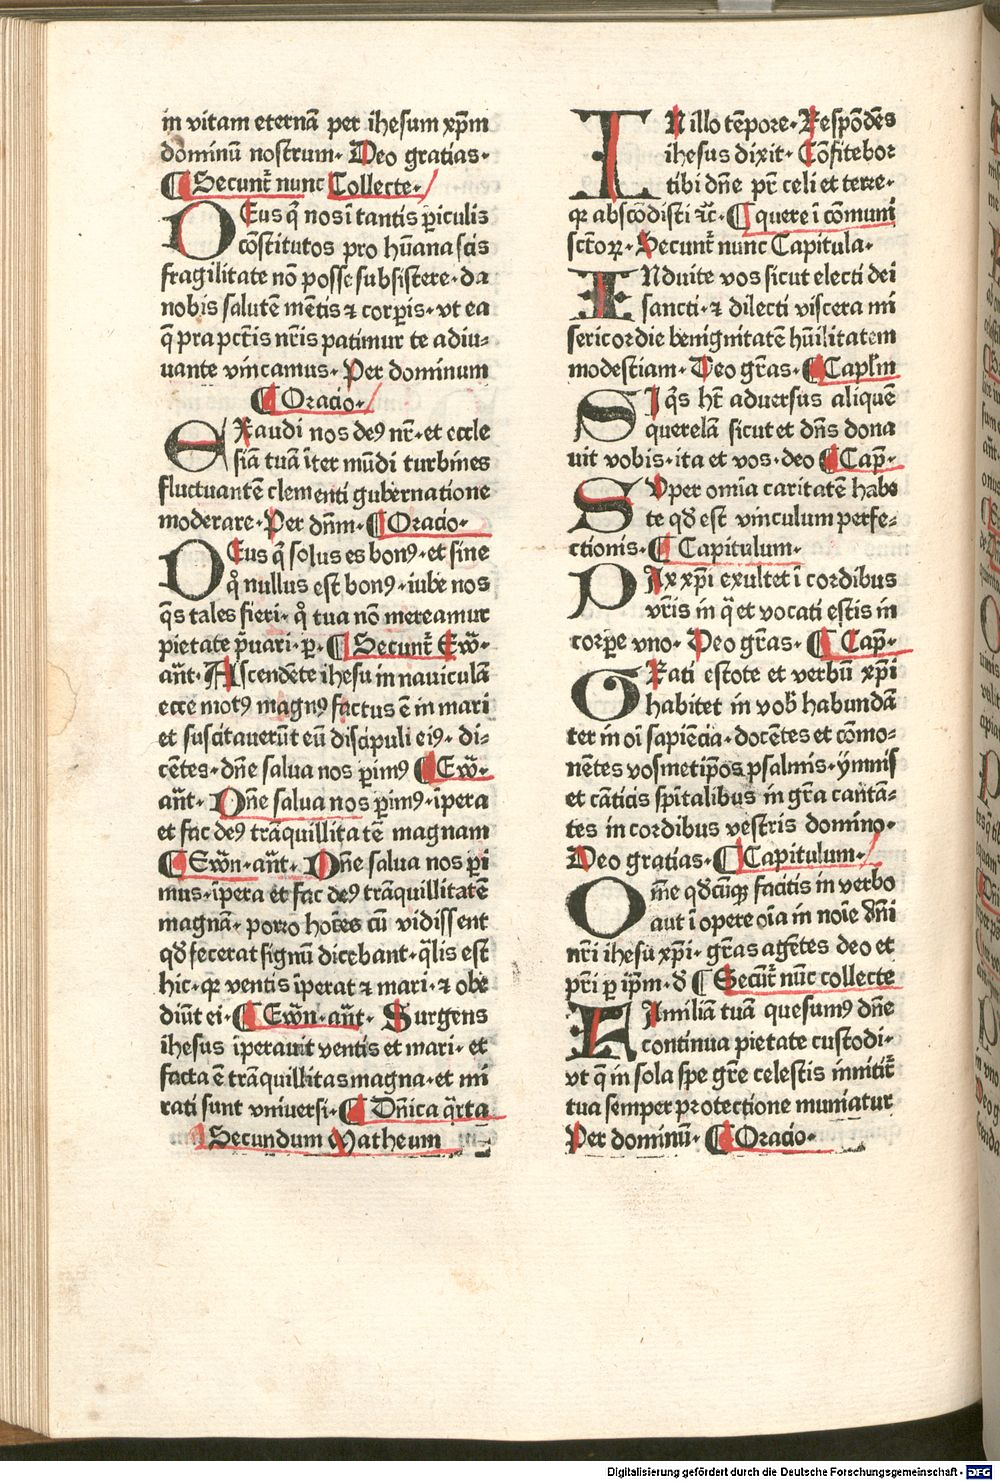 in vitam eternā per ihesum xp̄m
dominū nostrum. Deo gratias.
¶ Secunt᷑ nunc Collecte.
DEus q̄ nos ī tantis ꝑiculis
cōstitutos pro hūana scis
fragilitate nō posse subsistere. da
nobis salutē mētis ⁊ corꝑis. vt ea
q̄ pra pctīs nr̄is patimur te adiu-
uante vincamus. Per dominum
¶ Oracio.
EXaudi nos deꝰ nr̄. et eccle
siā tuā īter mūdi turbines
fluctuantē clementi gubernatione
moderare. Per dn̄m. ¶ Oracio.
DEus q̄ solus es bonꝰ. et sine
q̊ nullus est bonꝰ. iube nos
q̄s tales fieri. q̊ tua nō mereamur
pietate p̄uari. ꝑ. ¶ Secunt᷑ Ew̄.
an̄t. Ascendēte ihesu in nauiculā
ecce motꝰ magnꝰ factus ē in mari
et suscitauerūt eū discipuli eiꝰ. di-
cētes. dn̄e salua nos ꝑimꝰ ¶ Ew̄.
an̄t. Dn̄e salua nos ꝑimꝰ. īpera
et fac deꝰ trāquillitatē magnam
¶ Ew̄n. an̄t. Dn̄e salua nos ꝑi
mus. īpera et fac deꝰ trāquillitatē
magnā. porro hoīes cū vidissent
qd̄ fecerat signū dicebant. q̄lis est
hic. qꝛ ventis īperat ⁊ mari. ⁊ obe
diūt ei. ¶ Ew̄n. an̄t. Surgens
ihesus īperauit ventis et mari. et
facta ē trāquillitas magna. et mi
rati sunt vniuersi. ¶ Dn̄ica q̄rta
Secundum Matheum
IN illo tēpore. Respōdēs
ihesus dixit. Cōfitebor
tibi dn̄e pr̄ celi et terre.
qꝛ abscōdisti ⁊c̄. ¶ quere ī cōmuni
sctōꝝ. Secunt᷑ nunc Capitula.
INduite vos sicut electi dei
sancti. ⁊ dilecti viscera mi
sericordie benignitatē hūilitatem
modestiam. Deo gr̄as. ¶ Capl̄m
SI q̄s hꝫ aduersus aliquē
querelā sicut et dn̄s dona
uit vobis. ita et vos. deo ¶ Cap̄.
SVper omīa caritatē habe
te qd̄ est vinculum perfe-
ctionis. ¶ Capitulum.
PAx xp̄i exultet ī cordibus
vr̄is in q̄ et vocati estis in
corꝑe vno. Deo gr̄as. ¶ Cap̄.
GRati estote et verbū xp̄i
habitet in vob̄ habundā
ter in oī sapiēcia. docētes et cōmo-
nētes vosmetip̄os psalmis. ymnis
et cāticis sp̄italibus in gr̄a cantā-
tes in cordibus vestris domino.
Deo gratias. ¶ Capitulum.
Om̄e qd̄cūqꝫ facitis in verbo
aut ī opere oīa in noīe dn̄i
nr̄i ihesu xp̄i. gr̄as agētes deo et
pr̄i ꝑ ip̄m. d̄ ¶ Secūt᷑ nūc collecte
FAmiliā tuā quesumꝰ dn̄e
continua pietate custodi.
vt q̄ in sola spe gr̄e celestis innitit᷑
tua semper protectione muniatur
Per dominū. ¶ Oracio.
Digitalisierung gefördert durch die Deutsche Forschungsgemeinschaft - DFG